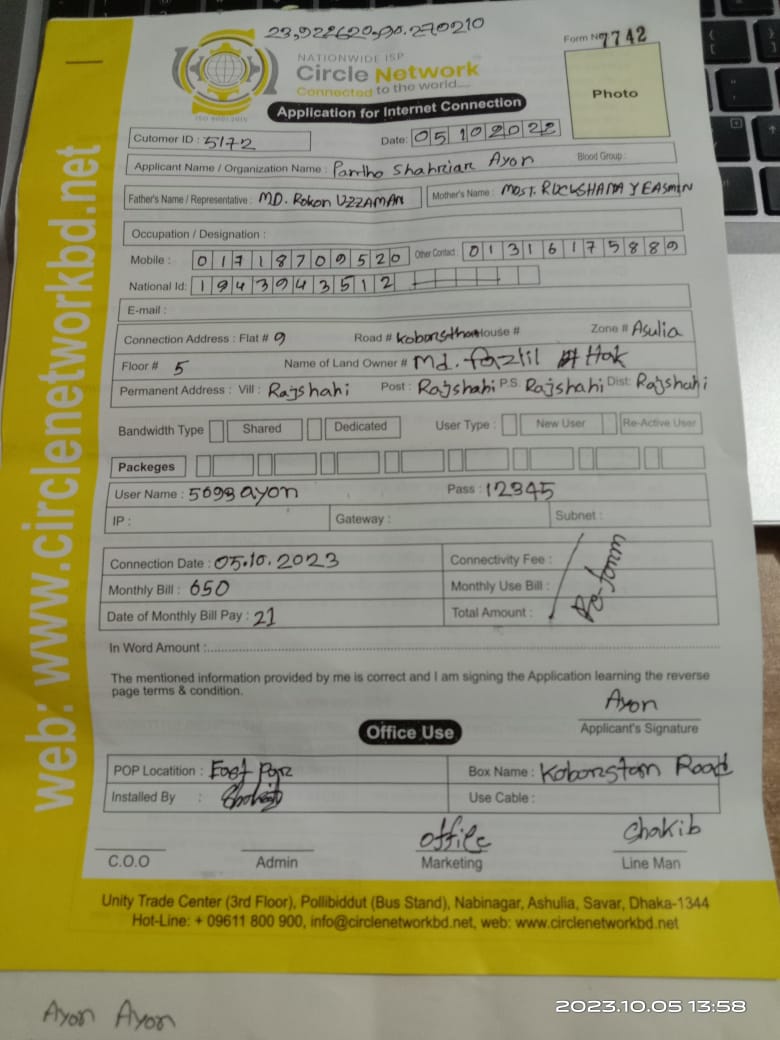 23,922620,90.270210
Form No 7742
NATIONWIDE ISP
Circle Network
Connected to the world....
ISO 9001:2015
Photo
Application for Internet Connection
Cutomer ID : 5172 Date: 05102022
Applicant Name / Organization Name : Partho Shahriar Ayon Blood Group :
Father's Name / Representative : MD. Rokon UZZAMAN Mother's Name : MOST. ROCKSHANA YEASMIN
Occupation / Designation :
Mobile : 01718709520 Other Contact : 01316175889
National Id: 1943943512
E-mail :
Connection Address : Flat # 9 Road # Kobarsthan House # Zone # Asulia
Floor # 5 Name of Land Owner # Md. Fazlil Hak
Permanent Address : Vill : Rajshahi Post : Rajshahi P.S. Rajshahi Dist: Rajshahi
Bandwidth Type Shared Dedicated User Type : New User Re-Active User
Packeges
User Name : 5693ayon Pass : 12345
IP : Gateway : Subnet :
Connection Date : 05.10.2023 Connectivity Fee :
Monthly Bill : 650 Monthly Use Bill :
Date of Monthly Bill Pay : 21 Total Amount :
Re-form
In Word Amount :
The mentioned information provided by me is correct and I am signing the Application learning the reverse
page terms & condition.
Ayon
Applicant's Signature
Office Use
POP Locatition : East Box Name : Koborstam Road
Installed By : Use Cable :
office Shakib
C.O.O Admin Marketing Line Man
Unity Trade Center (3rd Floor), Pollibiddut (Bus Stand), Nabinagar, Ashulia, Savar, Dhaka-1344
Hot-Line: + 09611 800 900, info@circlenetworkbd.net, web: www.circlenetworkbd.net
web: www.circlenetworkbd.net
Ayon Ayon
2023.10.05 13:58